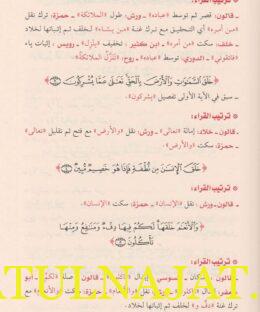 ـ قالون: قصر ثم توسط «عباده» ـ ورش: طول «الملائكة» ـ حمزة: ترك نقل
«من أمره» أي التحقيق مع ترك غنة «من يشاء» لخلف ثم إثباتها لخلاد
ـ خلف: سكت «من أمره» ـ ابن كثير: تخفيف «ينزل» ـ رويس: إثبات ياء
«فاتقوني» ـ الدوري: توسط «عباده» ـ روح: «تَنَزَّلُ الملائكةُ»
خَلَقَ السَّمَٰوَٰتِ وَالْأَرْضَ بِالْحَقِّ تَعَٰلَىٰ عَمَّا يُشْرِكُونَ
ـ سبق في الآية الأولى تفصيل «يشركون»
ترتيب القراء:
ـ قالون ـ خلاد: إمالة «تعالى» ـ ورش: نقل «والأرض» مع فتح ثم تقليل «تعالى»
ـ حمزة: سكت «والأرض»
خَلَقَ الْإِنسَٰنَ مِن نُّطْفَةٍ فَإِذَا هُوَ خَصِيمٌ مُّبِينٌ
ترتيب القراء:
ـ قالون ـ ورش: نقل «الإنسان» ـ حمزة: سكت «الإنسان»
وَالْأَنْعَٰمَ خَلَقَهَا لَكُمْ فِيهَا دِفْءٌ وَمَنَٰفِعُ وَمِنْهَا
تَأْكُلُونَ
ترتيب القراء:
ترك غنة «دفء و» لخلف ثم إثباتها لخلاد